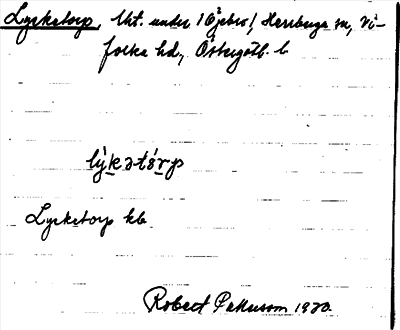 Lycketorp, lht. under 1 Öjebro/, Herrberga sn, Vi-
folka hd, Östergötl. l.
lỳkətơrp
Lycketorp kb
Robert Pettersson 1930.